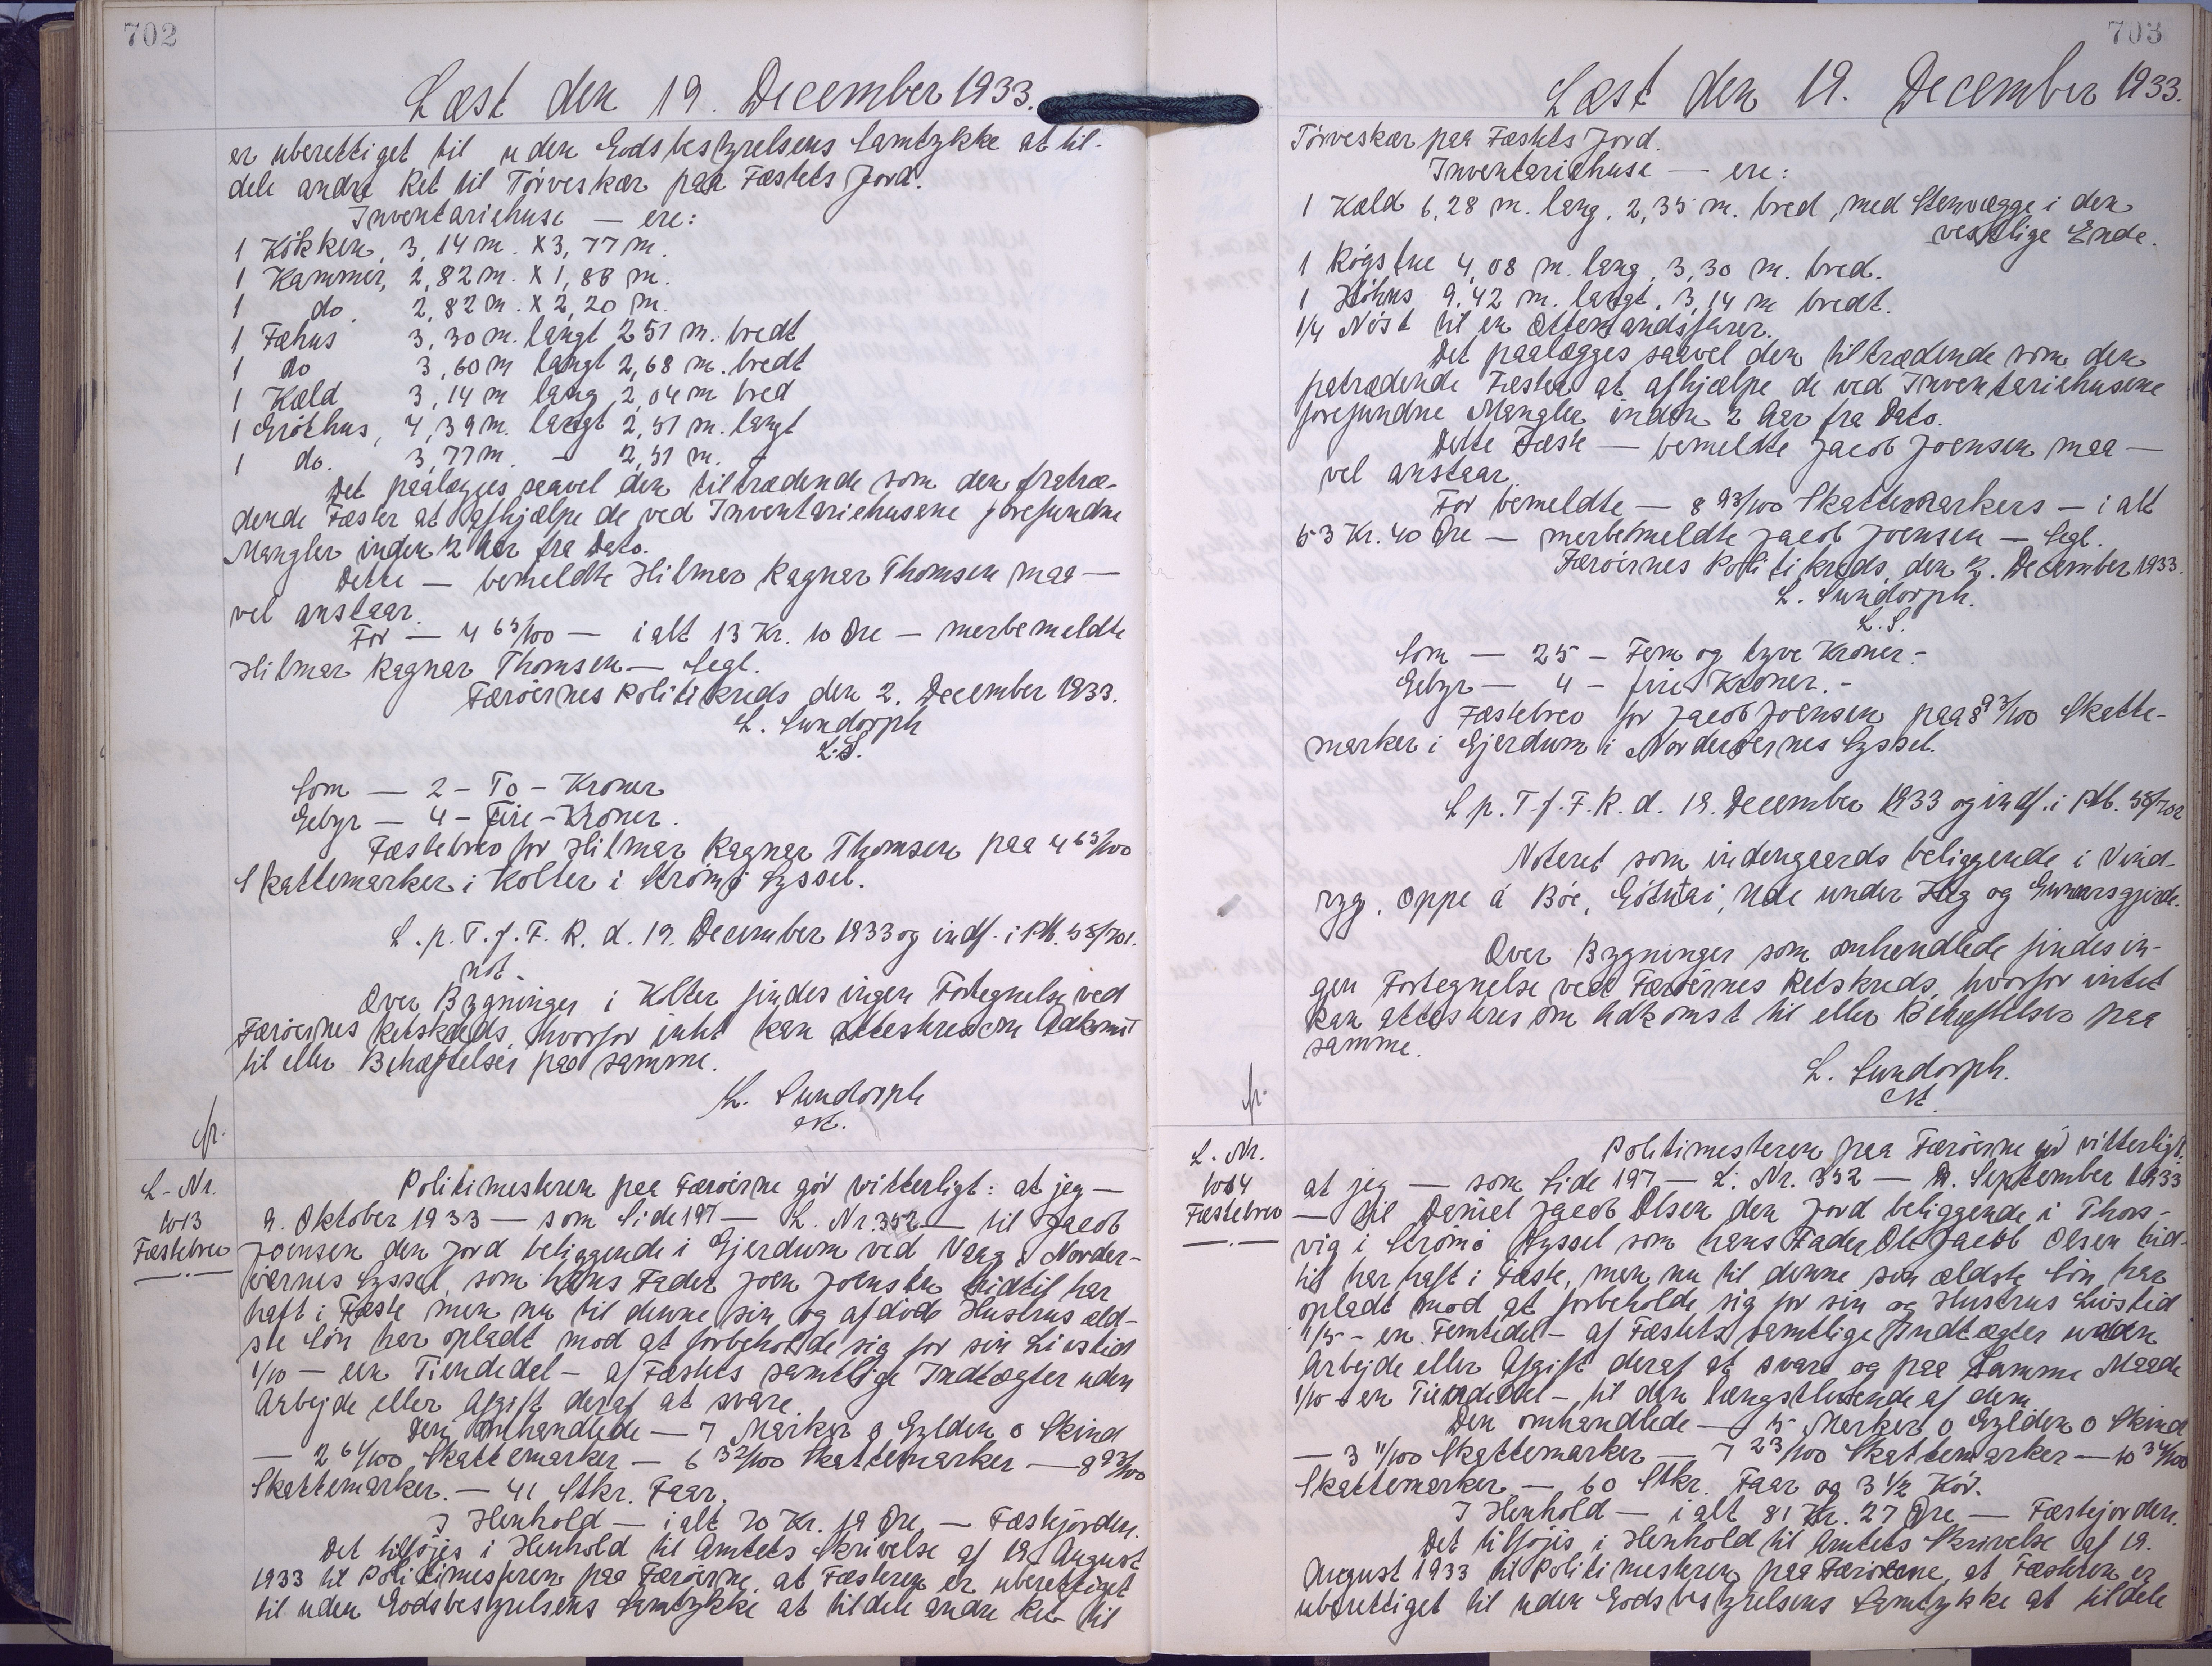 702
Læst den 19. December 1933.
er uberettiget til uden Godsbestyrelsens Samtykke at til-
dele andre Ret til Törveskær paa Fæstets Jord.
Inventariehuse — ere:
1 Kökken, 3,14 m. x 3,77 m.
1 Kammer, 2,82 m. x 1,88 m.
1 do. 2,82 m. x 2,20 m.
1 Fæhus 3,30 m. langt 2 51 m. bredt
1 do 3,60 m langt 2,68 m. bredt
1 Kæld 3,14 m lang 2,04 m bred
1 Gróthus, 4,39 m. langt 2,51 m. langt
1 do. 3,77 m. - 2,51 m. -
Det paalægges saavel den tiltrædende som den fratræ-
dende Fæster at afhjælpe de ved Inventariehusene forefundne
Mangler inden 2 Aar fra Dato.
Dette — bemeldte Hilmar Ragnar Thomsen maa —
vel anstaar.
For — 4 65/100 — i alt 13 Kr. 10 Øre — merbemeldte
Hilmar Ragnar Thomsen — Segl.
Færöernes Politikreds den 2. December 1933.
L. Sundorph
L.S.
Som — 2 - To - Kroner
Gebyr — 4 - Fire - Kroner.
Fæstebrev for Hilmar Ragnar Thomsen paa 4 65/100
Skattemarker i Kolter i Strömö Syssel.
L. p. T. f. F. R. d. 19. December 1933 og indf. i Ptb. 58/701.
not.
Over Bygninger i Kolter findes ingen Fortegnelse ved
Færöernes Retskreds, hvorfor intet kan attesteres om Adkomst
til eller Behæftelser paa samme.
L. Sundorph
L-Nr.
1013
Fæstebrev
Politimesteren paa Færöerne gör vitterligt: at jeg —
9. Oktober 1933 — som Side 197 — L. Nr. 352 — til Jacob
Joensen den Jord beliggende i Gjerdum ved Vaag i Norder-
öernes Syssel, som hans Fader Joen Joensen hidtil har
haft i Fæste men nu til denne sin og afdöde Hustrus æld-
ste Sön har opladt mod at forbeholde sig for sin Livstid
1/10 — een Tiendedel — af Fæstets samtlige Indtægter uden
Arbejde eller Afgift deraf at svare.
Den omhandlede — 7 Marker 0 Gylden 0 Skind
— 2 61/100 Skattemarker — 6 32/100 Skattemarker — 8 93/100
Skattemarker. — 41 Stkr. Faar.
I Henhold — i alt 70 Kr. 19 Øre — Fæstejorden.
Det tilföjes i Henhold til Amtets Skrivelse af 19. August
1933 til Politimesteren paa Færöerne, at Fæsteren er uberettiget
til uden Godsbestyrelsens Samtykke at tildele andre Ret til
703
Læst den 19. December 1933.
Törveskær paa Fæstets Jord.
Inventariehuse — ere:
1 Kæld 6,28 m. lang, 2,35 m. bred, med Stenvægge i den
vestlige Ende.
1 Rögstue 4,08 m. lang, 3,30 m. bred.
1 Höhus 9,42 m. langt, 3,14 m bredt.
1/4 Nöst til en Ottemandsfarer.
Det paalægges saavel den tiltrædende som den
fratrædende Fæster at afhjælpe de ved Inventariehusene
forefundne Mangler inden 2 Aar fra Dato.
Dette Fæste — bemeldte Jacob Joensen maa —
vel anstaar.
For bemeldte — 8 93/100 Skattemarkers — i alt
53 Kr. 40 Øre — merbemeldte Jacob Joensen — Segl.
Færöernes Politikreds, den 2. December 1933.
L. Sundorph.
L.S.
Som — 25 — Fem og tyve Kroner.-
Gebyr — 4 — fire Kroner.-
Fæstebrev for Jacob Joensen paa 8 93/100 Skatte-
marker i Gjerdum i Norderöernes Syssel.
L p. T. f. F. R. d. 19. December 1933 og indf. i Ptb. 58/702
Noteret som indengaards beliggende i Vind-
ryg, Oppe á Böe, Götutrai, Ude under Heg og Gunnarsgjerde.
Over Bygninger som omhandlede findes in-
gen Fortegnelse ved Færöernes Retskreds, hvorfor intet
kan attesteres om Adkomst til eller Behæftelser paa
samme.
L. Sundorph.
L. Nr.
1014
Fæstebrev
Politimesteren paa Færöerne gör vitterligt:
at jeg — som Side 197 — L. Nr. 352 — 9. September 1933
— til Daniel Jacob Olsen den Jord beliggende i Thors-
vig i Strömö Syssel som hans Fader Ole Jacob Olsen hid-
til har haft i Fæste, men nu til denne sin ældste Sön har
opladt mod at forbeholde sig for sin og Hustrus Livstid
1/5 - en Femtedel - af Fæstets samtlige Indtægter uden
Arbejde eller Afgift deraf at svare og paa Samme Maade
1/10 - en Tiendedel - til den længstlevende af dem
Den omhandlede — 5 Marker 0 Gylden 0 Skind
— 3 11/100 Skattemarker — 7 23/100 Skattemarker — 10 34/100
Skattemarker — 60 Stkr. Faar og 3 1/2 Kör.
I Henhold — i alt 81 Kr. 27 Øre — Fæstejorden.
Det tilföjes i Henhold til Amtets Skrivelse af 19.
August 1933 til Politimesteren paa Færöerne, at Fæsteren er
uberettiget til uden Godsbestyrelsens Samtykke at tildele